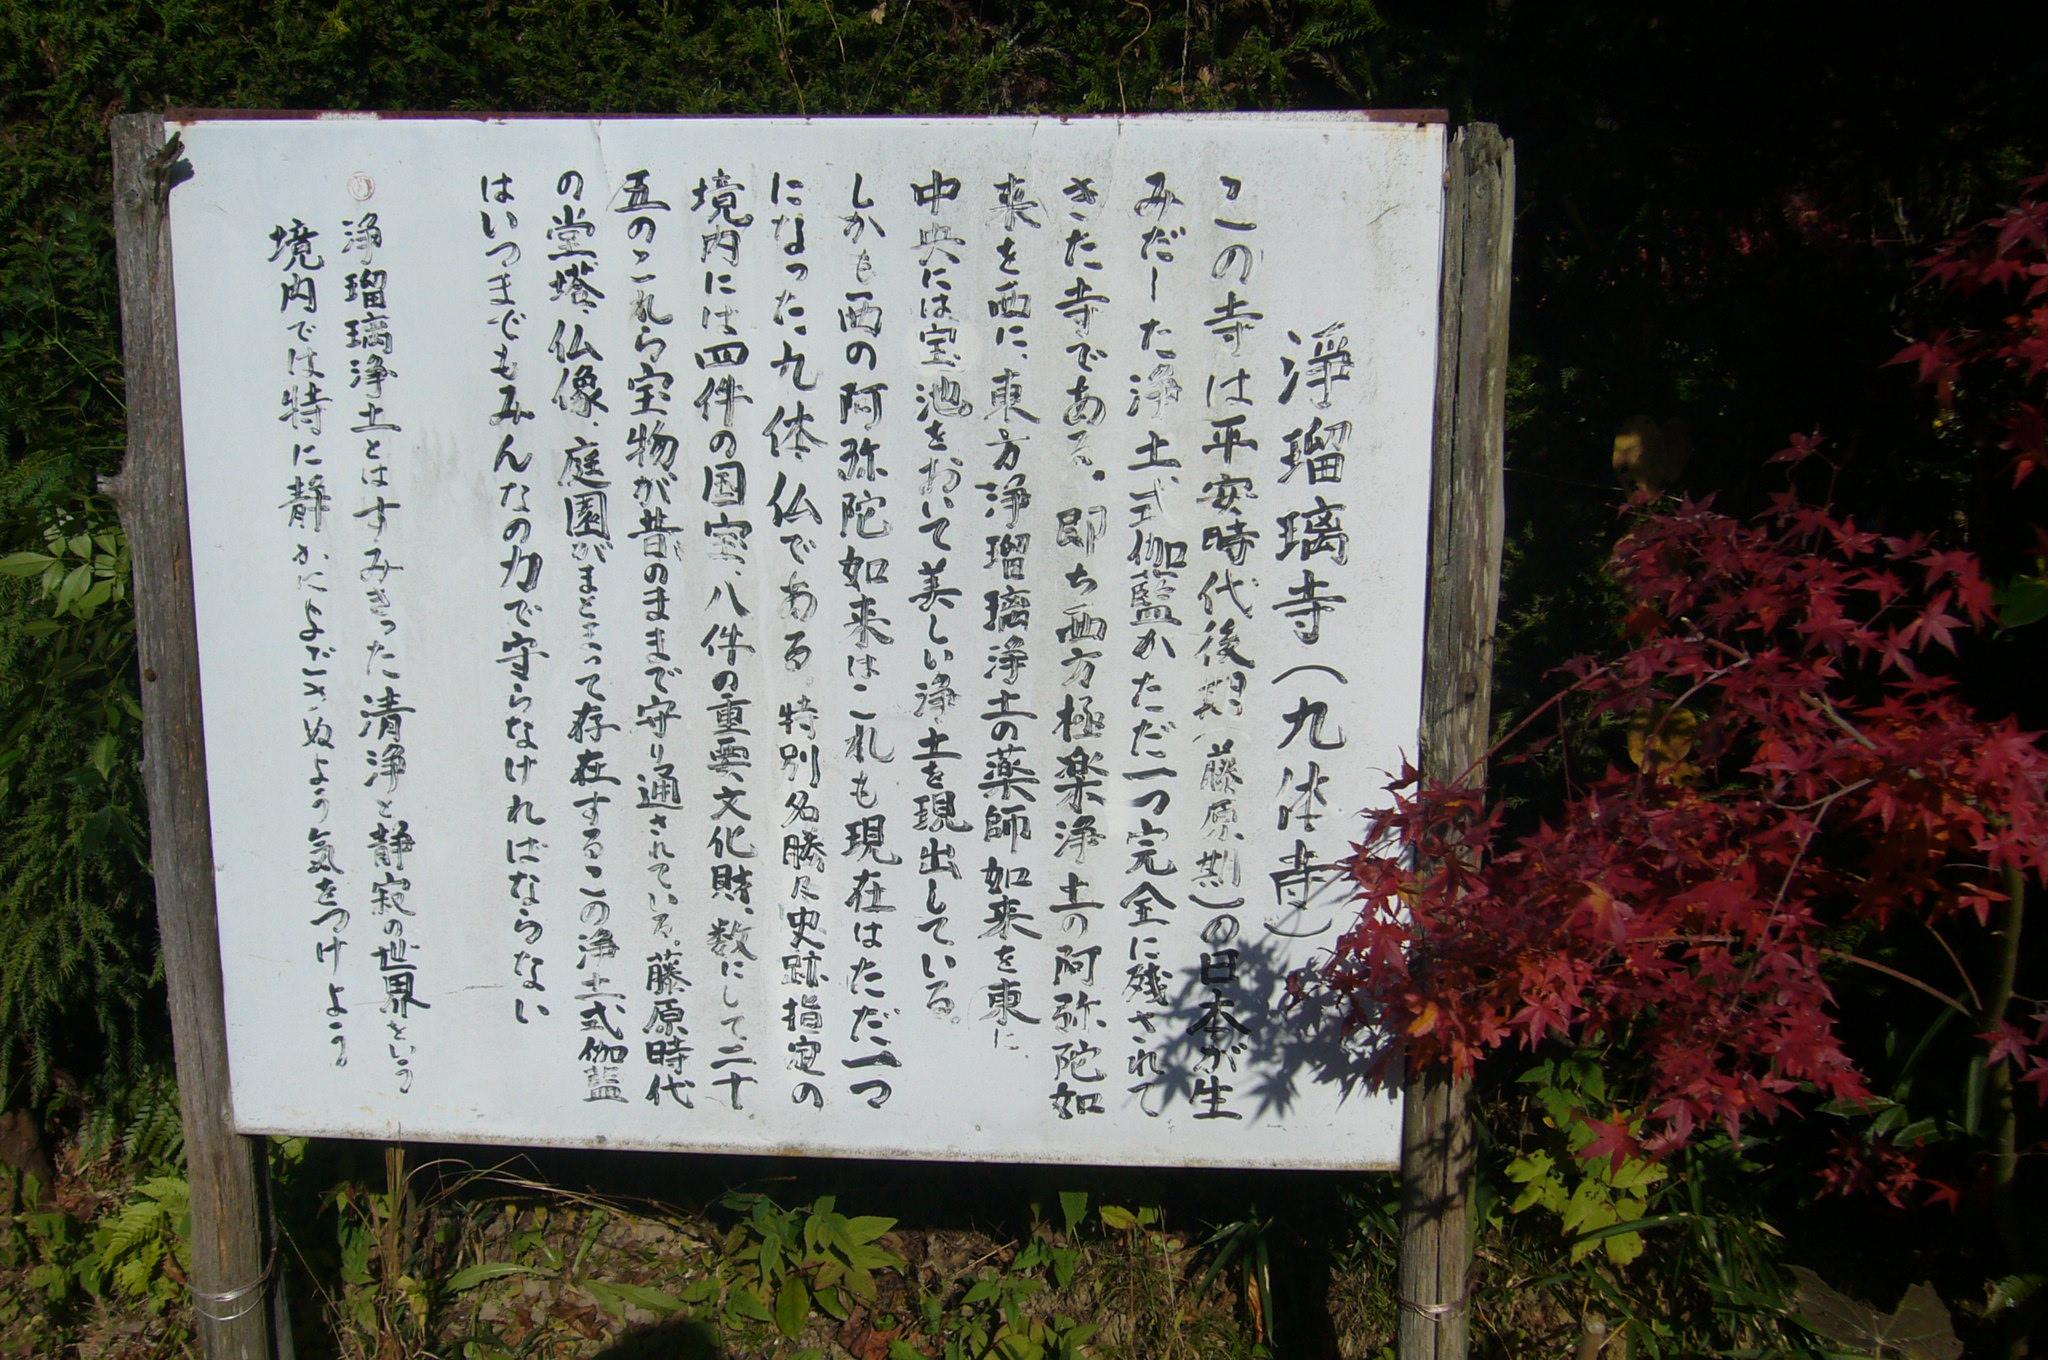 淨瑠璃寺(九体寺)
この寺は平安時代後期(藤原期)の日本が生
みだした浄土式伽藍がただ一つ完全に残されて
きた寺である。即ち西方極楽浄土の阿弥陀如
来を西に、東方浄瑠璃浄土の薬師如来を東に、
中央には宝池をおいて美しい浄土を現出している。
しかも西の阿弥陀如来はこれも現在はただ一つ
になった九体仏である。特別名勝及史跡指定の
境内には四件の国宝、八件の重要文化財、数にして二十
五のこれら宝物が昔のままで守り通されている。藤原時代
の堂塔、仏像、庭園がまとまって存在するこの浄土式伽藍
はいつまでもみんなの力で守らなければならない
浄瑠璃浄土とはすみきった清浄と静寂の世界をいう
境内では特に静かによごさぬよう気をつけよう